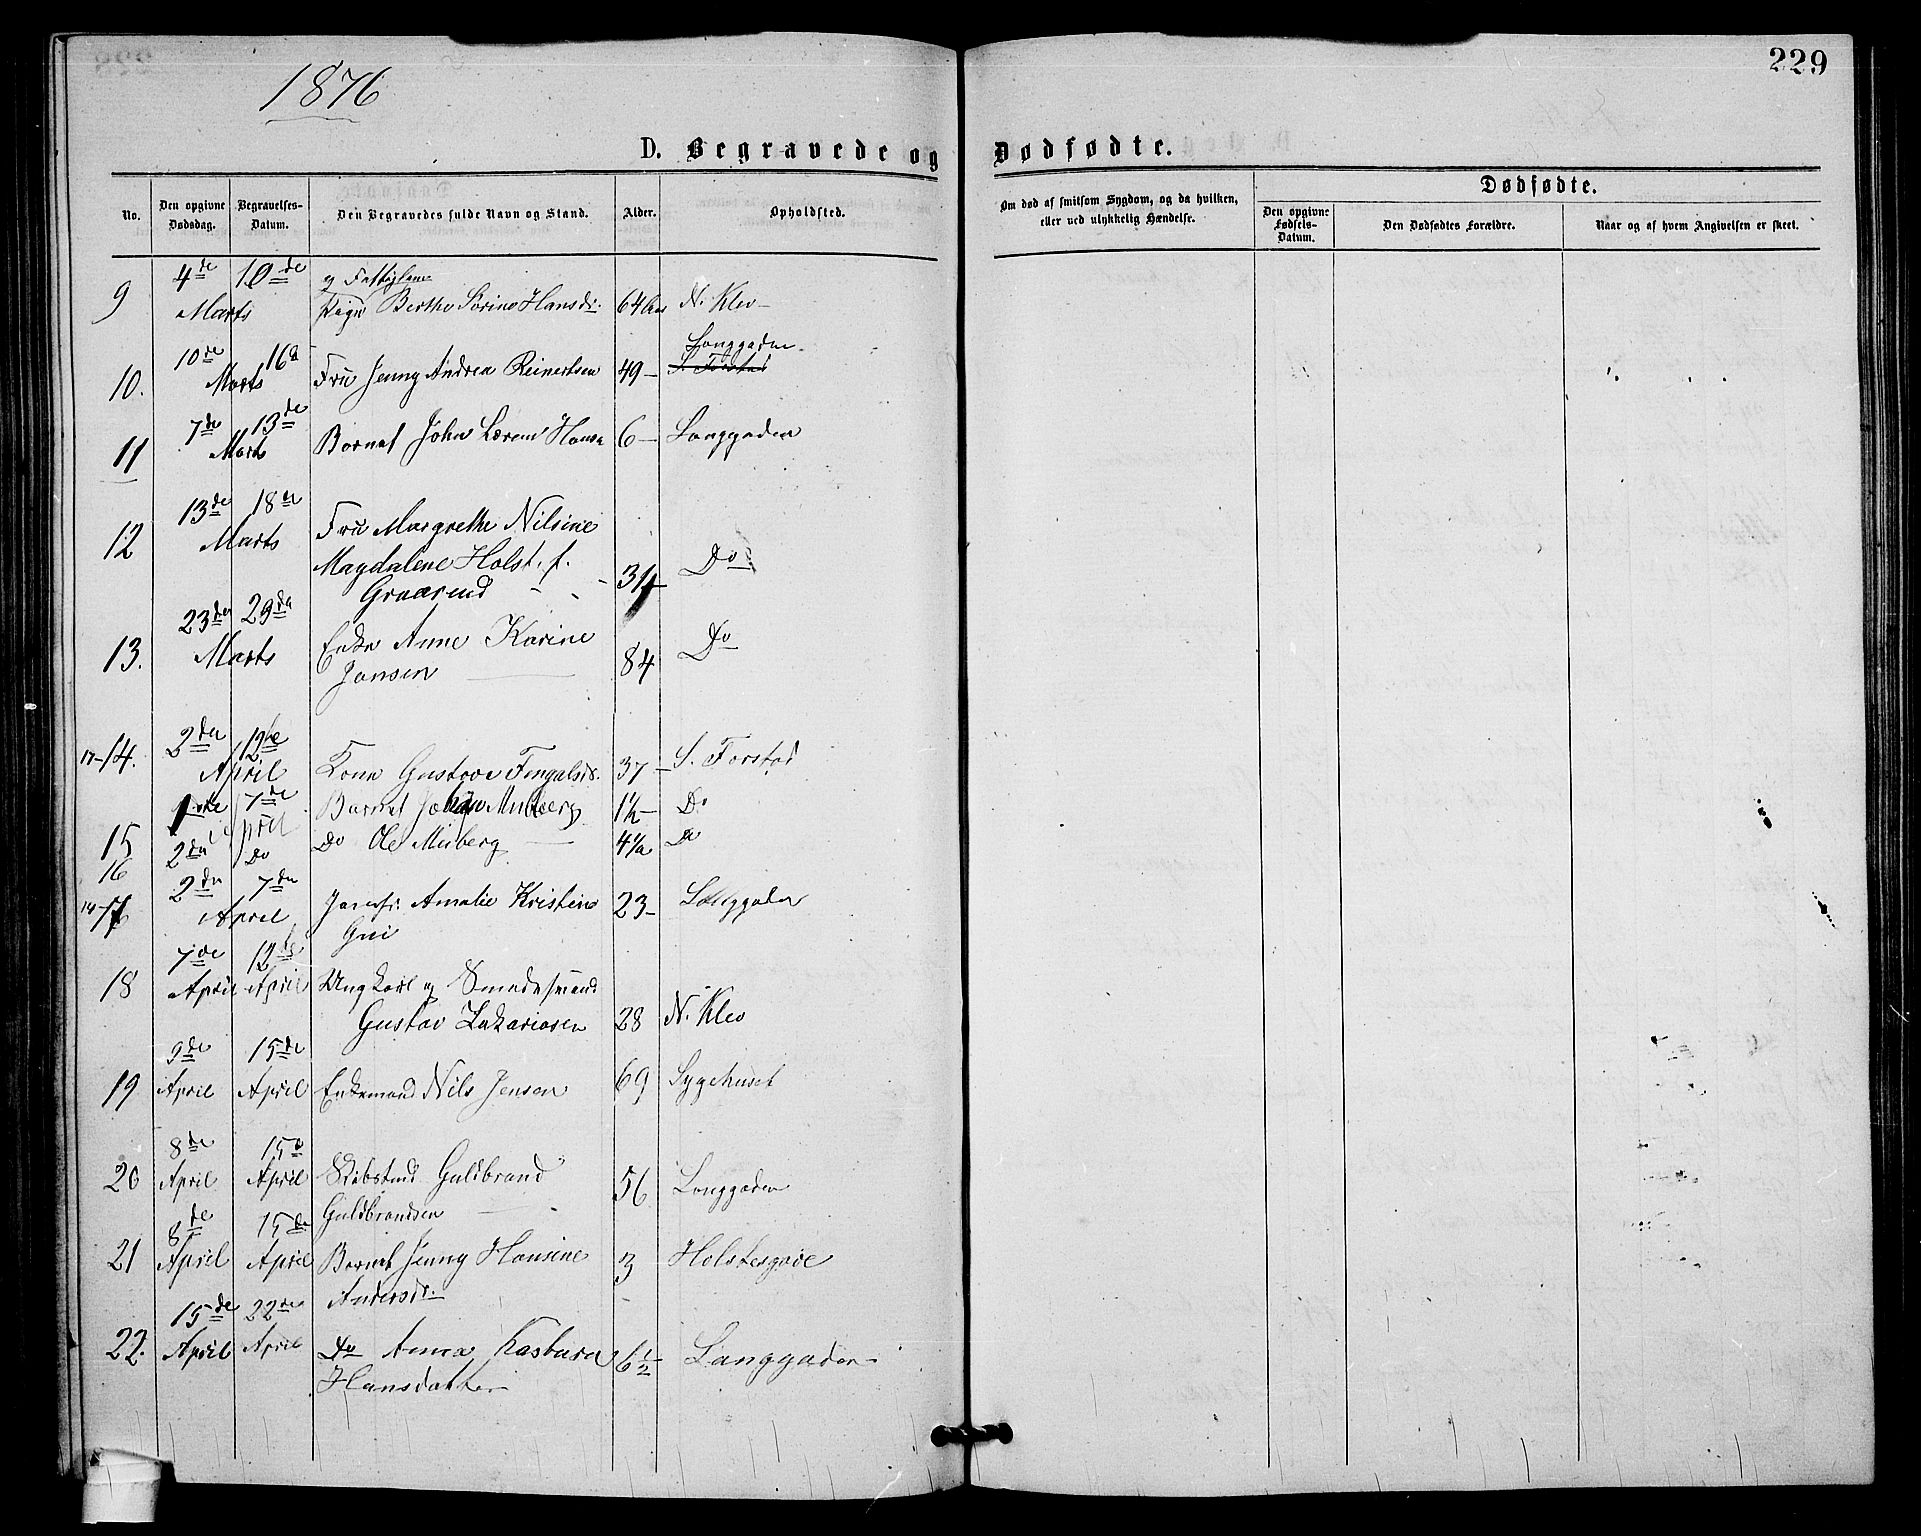 229
1876
D. Begravede og Dødfødte.
No. Den opgivne Dødsdag. Begravelses-Datum. Den Begravedes fulde Navn og Stand. Alder. Opholdsted.
Om død af smitsom Sygdom, og da hvilken, eller ved ulykkelig Hændelse.
Dødfødte.
Den opgivne Fødsels-Datum. Den Dødfødtes Forældre. Naar og af hvem Angivelsen er skeet.
4de 10de og Fattiglem
9 Marts Pige Berthe Sorine Hansdr. 64 Aar N. Klev
10de 16d Langgaden
10. Marts Fru Jenny Andrea Reinertsen 49 - S. Forstad
7de 13de
11 Marts Barnet John Hansen 6 - Langgaden
13de 18de
12 Marts Fru Margrethe Nilsine
Magdalene Holst f. 31 Do
Graarud
23de 29de
13. Marts Enke Anne Karine 84 Do
Jansen
2den 12te
17-14. April Kone Gustave Fingalsdr. 37 - S. Forstad
1ste 7de Barnet Johan Muberg 1½ - Do
15 April
2den Do Do Ole Muberg 4½ Do
16
2den 7de
14-17 April Jomfr. Amalie Kristine 23 - Langgaden
7de 12te
18 April April Ungkarl og Smedesvend
Gustav Zakariasen 28 N. Klev
9de 15de
19 April April Enkemand Nils Jensen 69 Sygehuset
8de 15d
20 April April Guldbrand 56 Langgaden
Guldbrandsen
8de 15de
21 April April Barnet Jenny Hansine 3 Holstesgade
Andersdr.
15de 22de
22. April April Do Anna Kasbara 6½ - Langgaden
Hansdatter